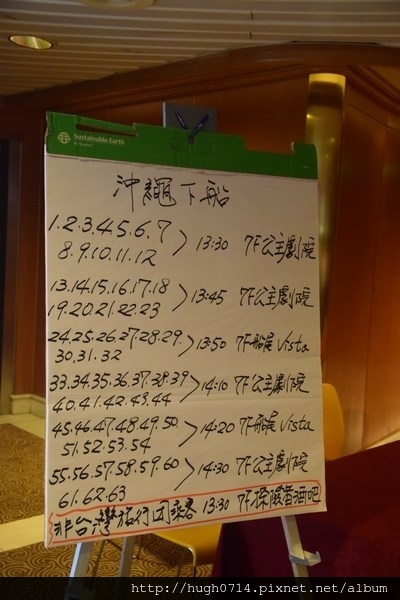 Sustainable Earth
沖繩下船
1.2.3.4.5.6.7
8.9.10.11.12 > 13:30 7F公主劇院
13.14.15.16.17.18
19.20.21.22.23 > 13:45 7F公主劇院
24.25.26.27.28.29
30.31.32 > 13:50 7F船尾 Vista
33.34.35.36.37.38.39
40.41.42.43.44 > 14:10 7F公主劇院
45.46.47.48.49.50
51.52.53.54 > 14:20 7F船尾 Vista
55.56.57.58.59.60
61.62.63 > 14:30 7F公主劇院
非台灣旅行团乘客 13:30 7F探險者酒吧
http://hugh0714.pixnet.net/album